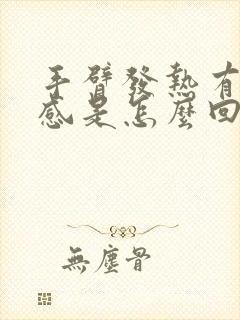 手臂發熱有
感是怎麼回
無塵骨